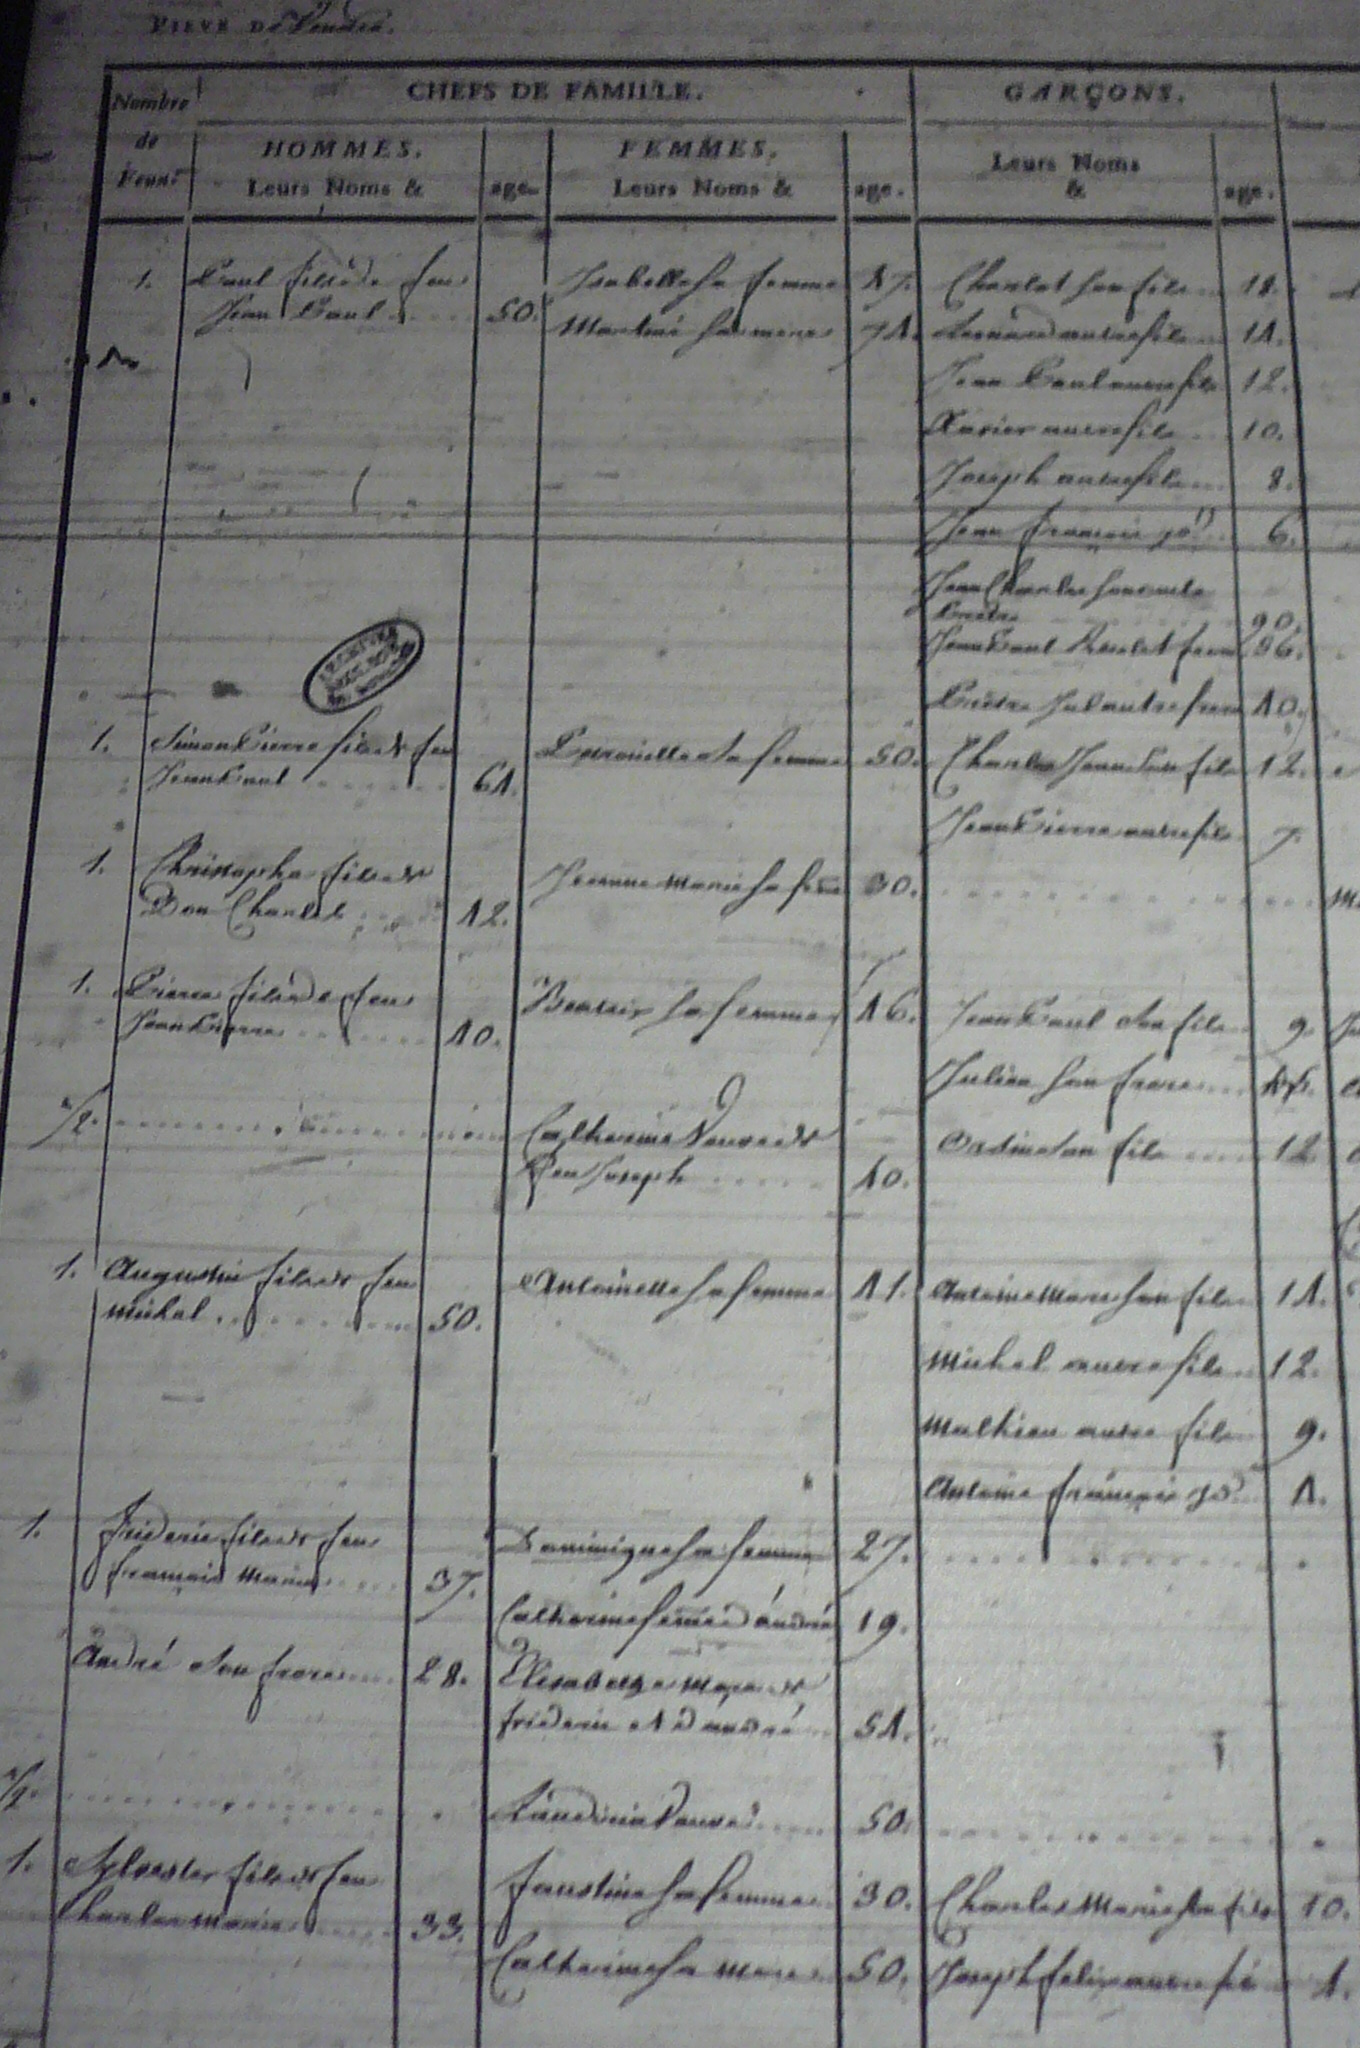 PIEVE DE
Nombre de Feux
CHEFS DE FAMILLE.
GARÇONS.
HOMMES.
Leurs Noms &
age
FEMMES.
Leurs Noms &
age.
Leurs Noms
&
age.
1. Paul fils de feu Isabelle sa femme 47. Charles son fils 18.
Jean Paul 50. sa mere 71. autre fils 14.
Jean Paul autre fils 12.
Xavier autre fils 10.
Joseph autre fils 8.
Jean françois 6.
Jean Charles son oncle
Prêtre 90.
Jean Paul frere 56.
Prêtre autre frere 40.
1. Simon Pierre fils de feu Petronille sa femme 50. Charles Jean son fils 12.
Jean Paul 61.
Jean Pierre autre fils 7.
1. Christophe fils de Jeanne Marie sa fème 30.
Don Charles 42.
1. Pierre fils de feu Beatrix sa femme 46. Jean Paul son fils 9.
Jean Pierre 40.
Julien son frere
1/2. Catherine Veuve de son fils 12.
feu Joseph 40.
1. Augustin fils de feu Antoinette sa femme 41. Antoine Marc son fils 14.
Michel 50.
Michel autre fils 12.
Mathieu autre fils 9.
Antoine françois 4.
1. frideric fils de feu Dominique sa femme 27.
françois Marie 37.
Catherine feme d'andré 19.
André son frere 28. Elisabette mere de
frideric et d'andré 54.
1/2. Veuve 50.
1. Sylvestre fils de feu Faustine sa femme 30. Charles Marie son fils 10.
Charles Marie 33.
Catherine sa mere 50. Joseph felix autre fil 4.